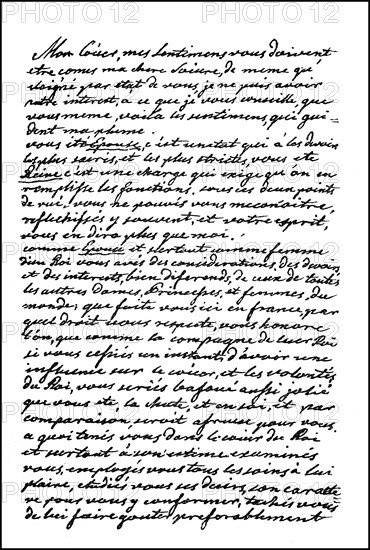 Mon Coeur, mes sentimens vous doivent
etre conus ma chere Soeure, de meme qu'
eloigné par etat de vous, je ne puis avoir
autre interest, a ce que je vous conseille, que
vous meme, voila les sentimens qui gui-
dent ma plume.
vous ete Epouse, c'est un etat qui à les devoirs
les plus sacrés, et les plus strictes, vous ete
Reine c'est une charge qui exige qu'on en
remplisse les fonctions, sous ces deux points
de vue, vous ne pouvés vous meconoitre,
reflechissés y souvent, et votre esprit,
vous en dira plus que moi.
comme Epouse et surtout comme femme
d'un Roi vous avés des considerations, des devoirs,
et des interests, bien diferends, de ceux de toutes
les autres Dames, Princesses, et femmes, du
monde, que faite vous ici en france, par
quel droit vous respecte, vous honore
t'on, que comme la compagne de leur Roi
si vous cessiés un instant, d'avoir une
influence sur le coeur, et les volontés,
du Roi, vous seriés bafoué aussi jolie
que vous ete, la chute, est en soi, et par
comparaison, seroit afreuse pour vous.
a quoi tenés vous dans le coeur du Roi
et surtout à son estime examinés
vous, employés vous tous les soins à lui
plaire, etudiés vous ses desirs, son caractte
re pour vous y conformer, tachés vous
de lui faire gouter preferablement
PHOTO 12